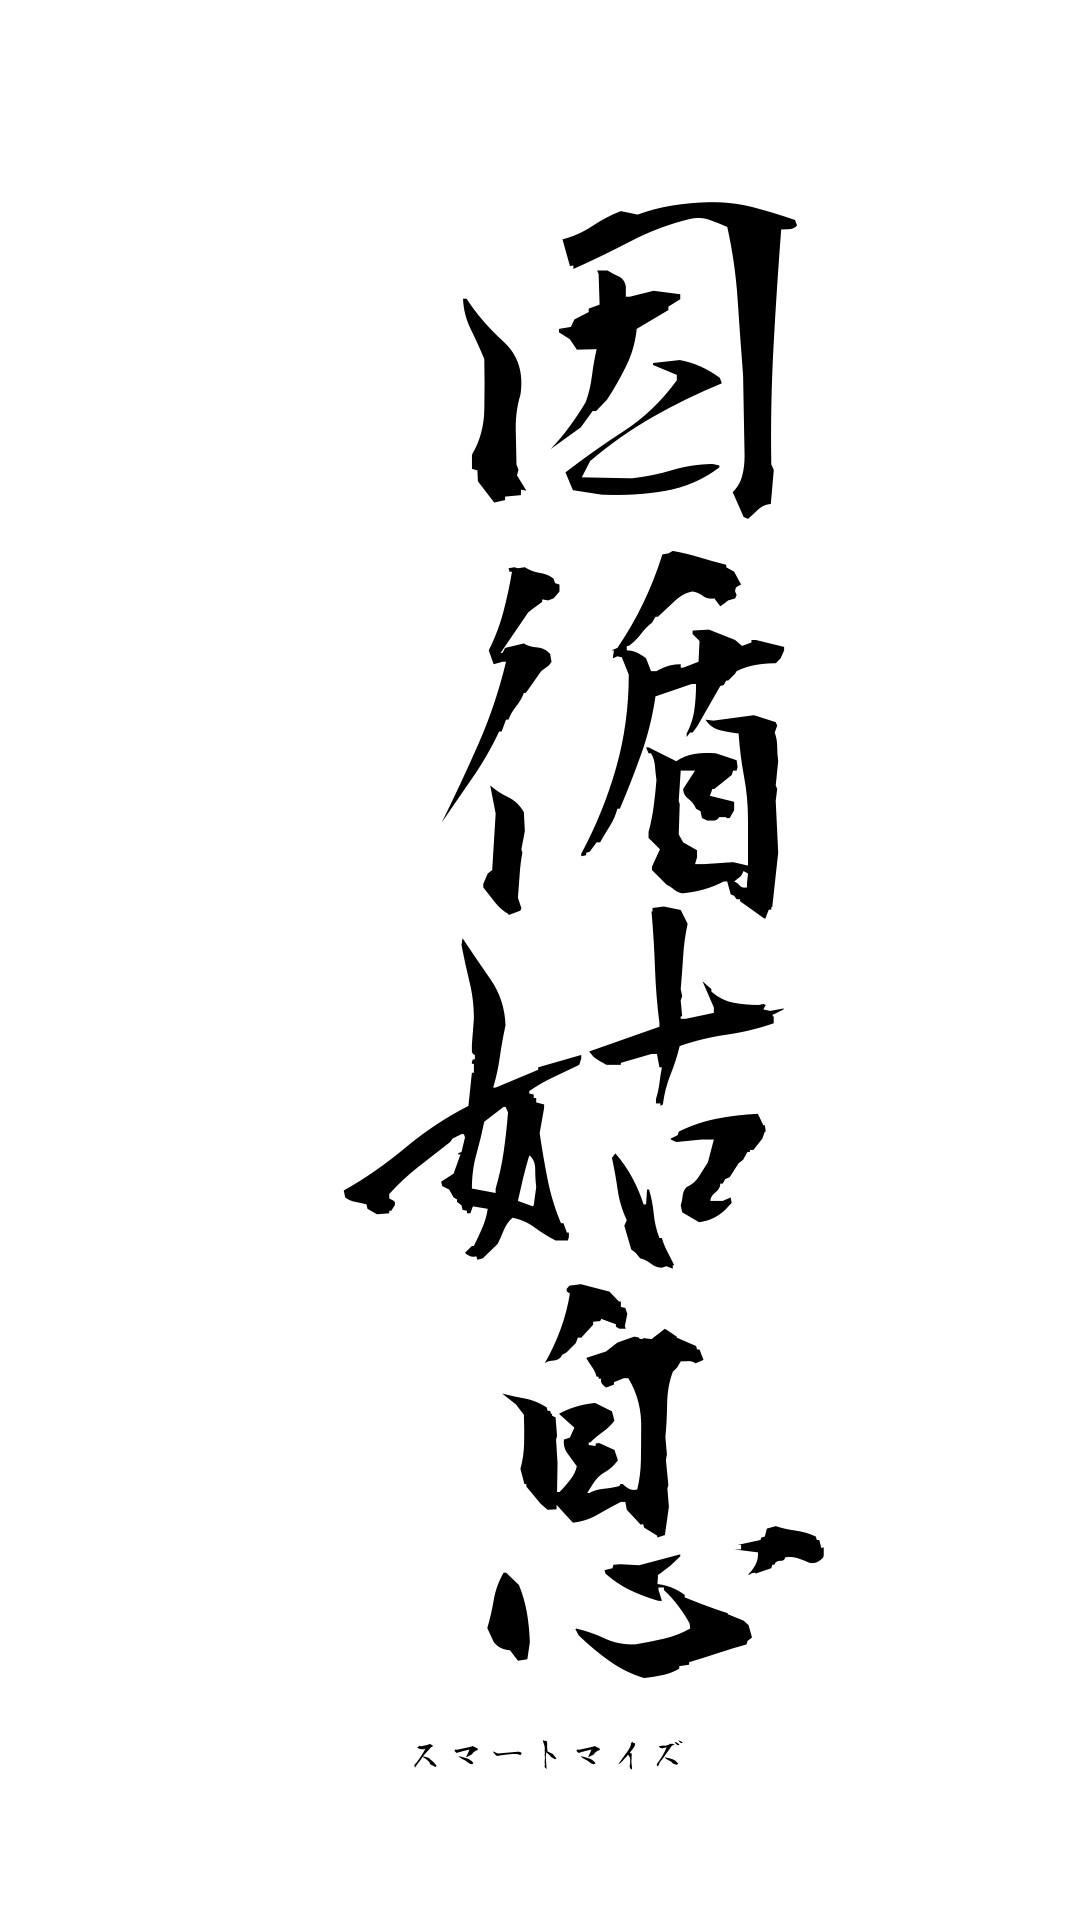 因循姑息
スマートマイズ